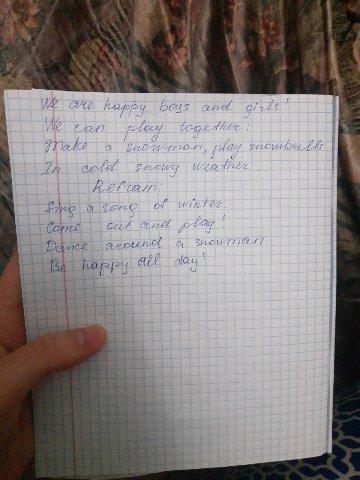 We are happy boys and girls!
We can play together:
Make a snowman, play snowballs
In cold snowy weather
Refrain:
Sing a song of winter.
Come out and play!
Dance around a snowman
Be happy all day!